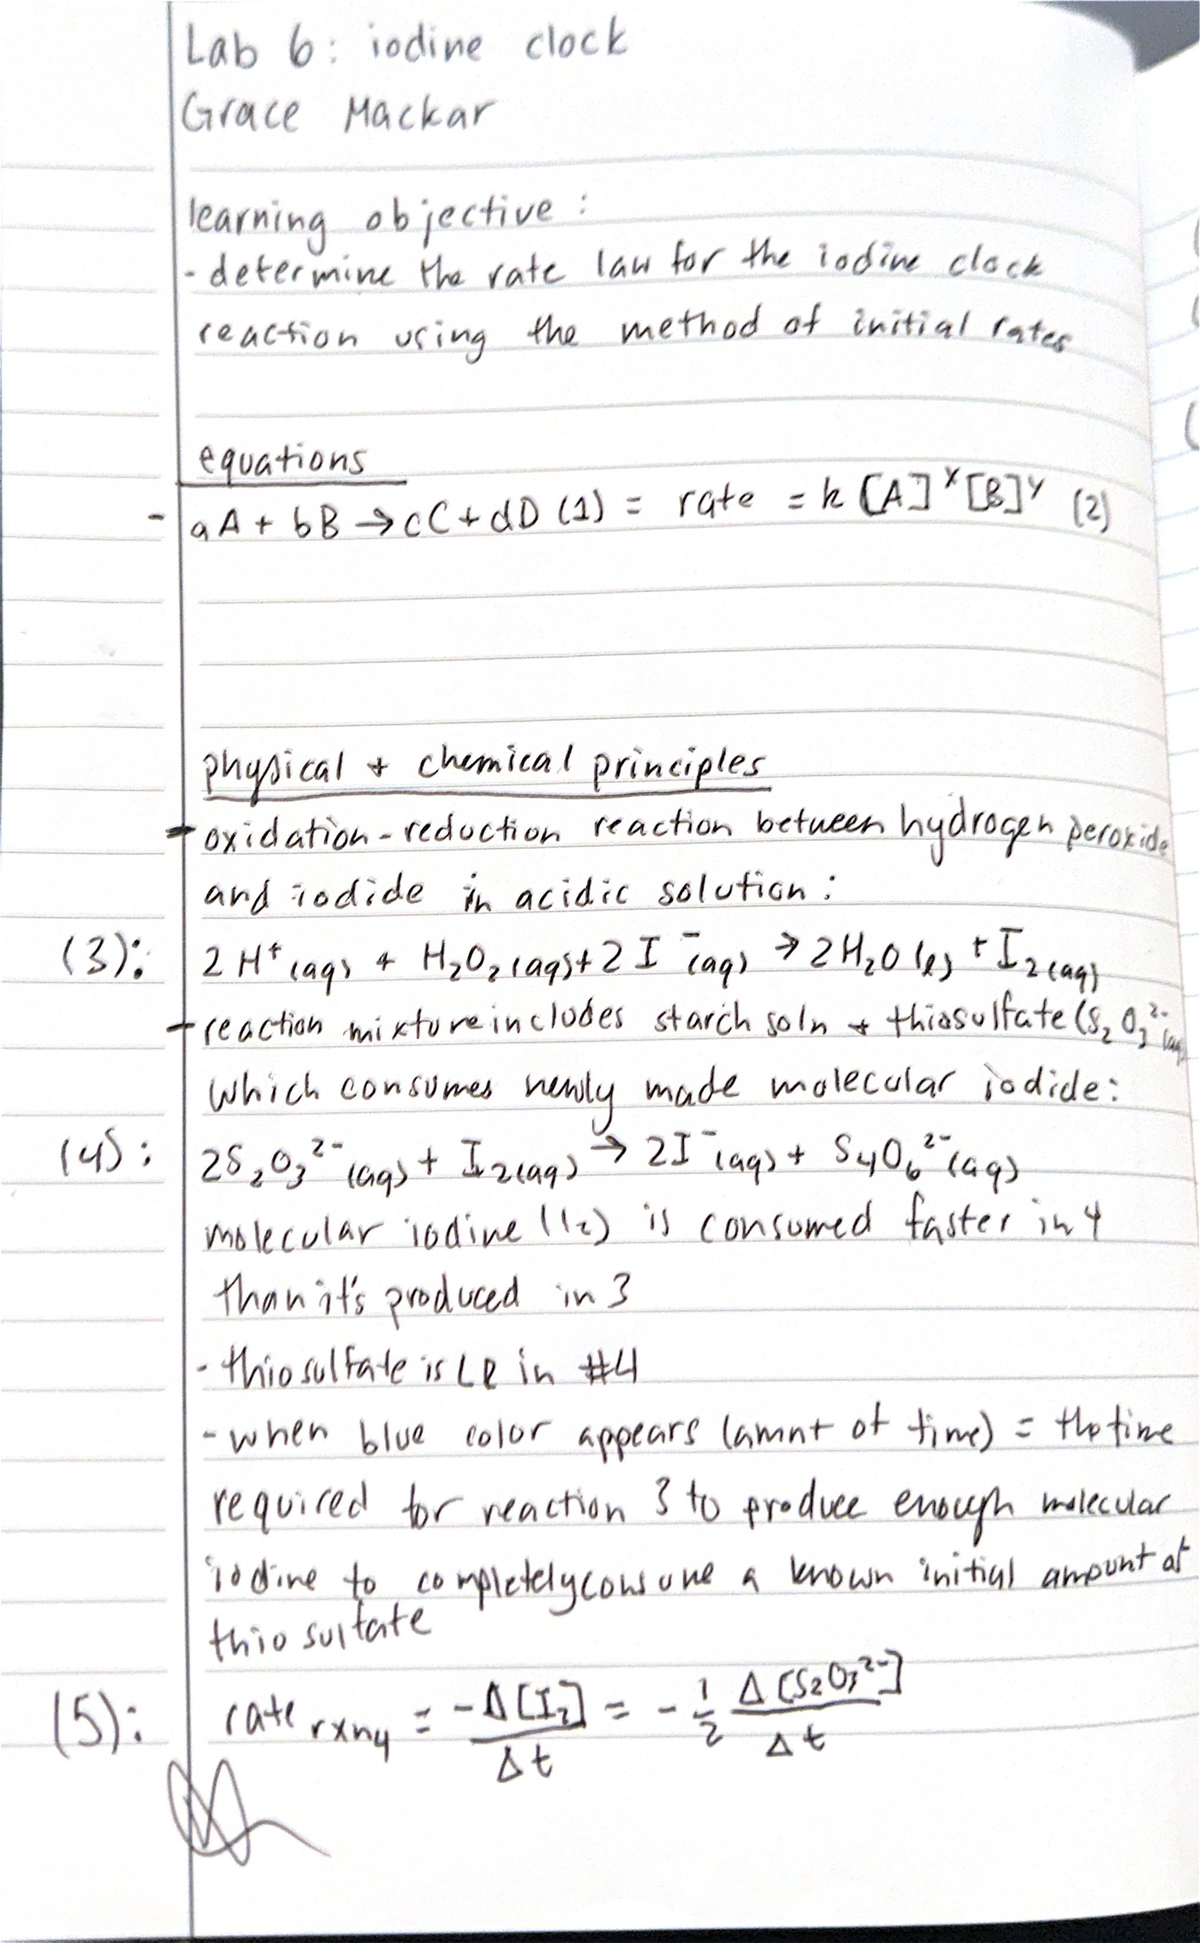 Lab 6: iodine clock
Grace Mackar
learning objective:
- determine the rate law for the iodine clock
reaction using the method of initial rates
equations
- aA + bB → cC + dD (1) = rate = k [A]ˣ [B]ʸ (2)
physical + chemical principles
- oxidation-reduction reaction between hydrogen peroxide
and iodide in acidic solution:
(3): 2H⁺(aq) + H₂O₂(aq) + 2I⁻(aq) → 2H₂O(l) + I₂(aq)
- reaction mixture includes starch soln + thiosulfate (S₂O₃²⁻(aq)
which consumes newly made molecular iodide:
(4): 2S₂O₃²⁻(aq) + I₂(aq) → 2I⁻(aq) + S₄O₆²⁻(aq)
molecular iodine (I₂) is consumed faster in 4
than it's produced in 3
- thiosulfate is LR in #4
- when blue color appears (amnt of time) = the time
required for reaction 3 to produce enough molecular
iodine to completely consume a known initial amount of
thiosulfate
(5): rate rxn4 = -Δ[I₂]/Δt = -1/2 Δ[S₂O₃²⁻]/Δt